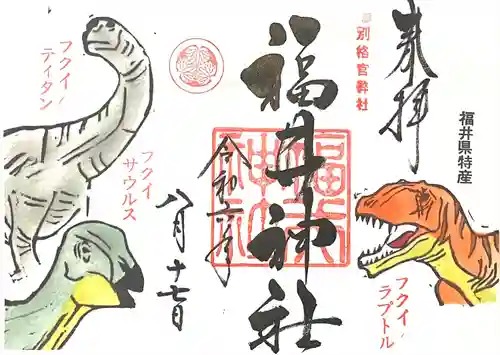 奉拝
福井県特産
別格官幣社
福井神社
福井神社
令和六年
八月十七日
フクイ
ティタン
フクイ
サウルス
フクイ
ラプトル